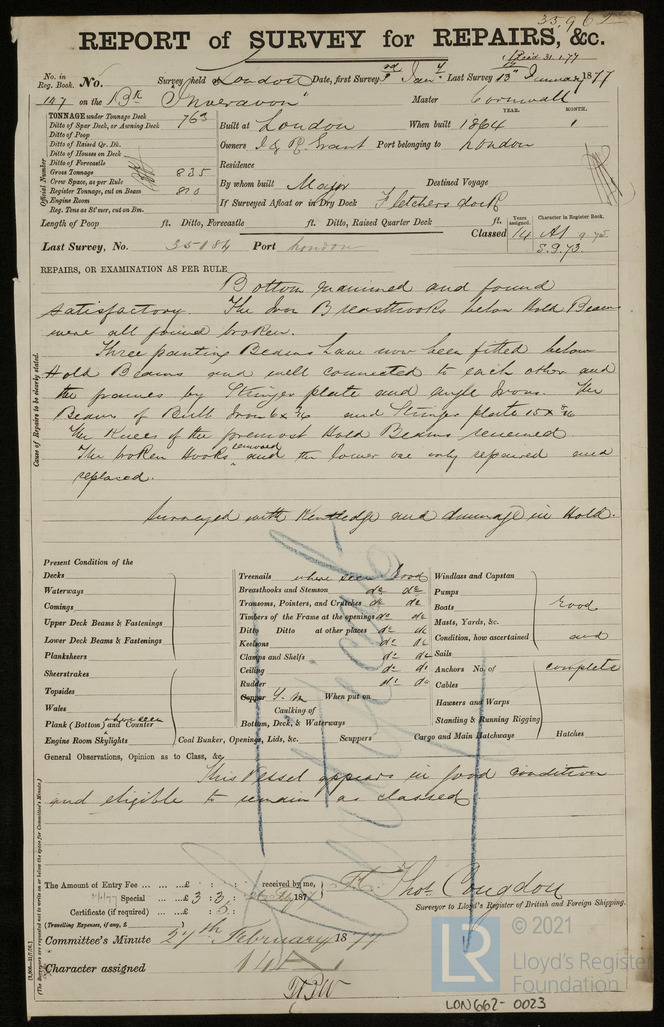 35,962
REPORT of SURVEY for REPAIRS, &c.
No. in Reg. Book. No. Survey held London Date, first Survey 3rd Jany Last Survey 13th January 1877
147 on the Bk "Inveravon" Master Cornwall
TONNAGE under Tonnage Deck 763
Ditto of Spar Deck, or Awning Deck
Ditto of Poop
Ditto of Raised Qr. Dk.
Ditto of Houses on Deck
Ditto of Forecastle
Gross Tonnage 835
Crew Space, as per Rule
Register Tonnage, cut on Beam 820
Engine Room
Reg. Tons as St'mer, cut on Bm.
Official Number
YEAR. MONTH.
Built at London When built 1864 1
Owners I & R. Grant Port belonging to London
Residence
By whom built Major Destined Voyage
If Surveyed Afloat or in Dry Dock Fletchers dock
Length of Poop ft. Ditto, Forecastle ft. Ditto, Raised Quarter Deck ft.
Years assigned. Character in Register Book.
Classed 14 A1
S.9.73.
Last Survey, No. 35884 Port London
REPAIRS, OR EXAMINATION AS PER RULE
Bottom examined and found
satisfactory. The Iron Breasthooks below Hold Beams
were all found broken.
Three panting Beams have now been fitted below
Hold Beams and well connected to each other and
the frames by Stringer plate and angle Irons. The
Beams of Bulb Iron 6 x 7/16 and Stringer plate 15 x 7/16
The Knees of the foremost Hold Beams renewed
The broken Hooks removed and the lower one only repaired and
replaced.
Surveyed with Kentledge and dunnage in Hold.
Cause of Repairs to be clearly stated.
Present Condition of the
Decks
Waterways
Comings
Upper Deck Beams & Fastenings
Lower Deck Beams & Fastenings
Planksheers
Sheerstrakes
Topsides
Wales
Plank (Bottom) and Counter where seen
Engine Room Skylights
Treenails where seen Good
Breasthooks and Stemson do do
Transoms, Pointers, and Crutches do do
Timbers of the Frame at the openings do do
Ditto Ditto at other places do do
Keelsons do do
Clamps and Shelfs do do
Ceiling do do
Rudder do do
Copper Y.M. When put on
Caulking of
Bottom, Deck, & Waterways
Coal Bunker, Openings, Lids, &c. Scuppers Cargo and Main Hatchways Hatches
Windlass and Capstan
Pumps
Boats Good
Masts, Yards, &c.
Condition, how ascertained and
Sails
Anchors No. of complete
Cables
Hawsers and Warps
Standing & Running Rigging
General Observations, Opinion as to Class, &c.
This Vessel appears in good condition
and eligible to remain as classed
The Amount of Entry Fee £ : : received by me,
Special £ 3 : 3 : 1877
Certificate (if required) £ : 5 :
(Travelling Expenses, if any, £ )
Thos. Congdon
Surveyor to Lloyd's Register of British and Foreign Shipping.
Committee's Minute 27th February 1877
Character assigned 14 A 1
(The Surveyors are requested not to write on or below the space for Committee's Minute.)
LR © 2021
Lloyd's Register
Foundation
LON662-0023